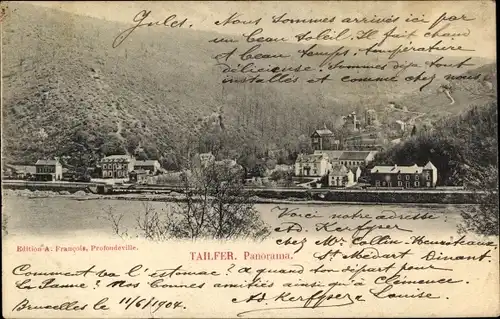 Jules, Nous sommes arrivés ici par
un beau soleil. Il fait chaud
et beau temps, température
délicieuse. Sommes déja tout
installés et comme chez nous
Voici notre adresse
Ad. Kerffper
chez Mr. Collin-
St. Médart Dinant.
Edition A. François, Profondeville.
TAILFER. Panorama.
Comment va l'estomac? a quand ton départ pour
La Panne? Nos bonnes amitiés ainsi qu'a Clémence.
Bruxelles le 11/6 1904. Ad Kerffper Louise.